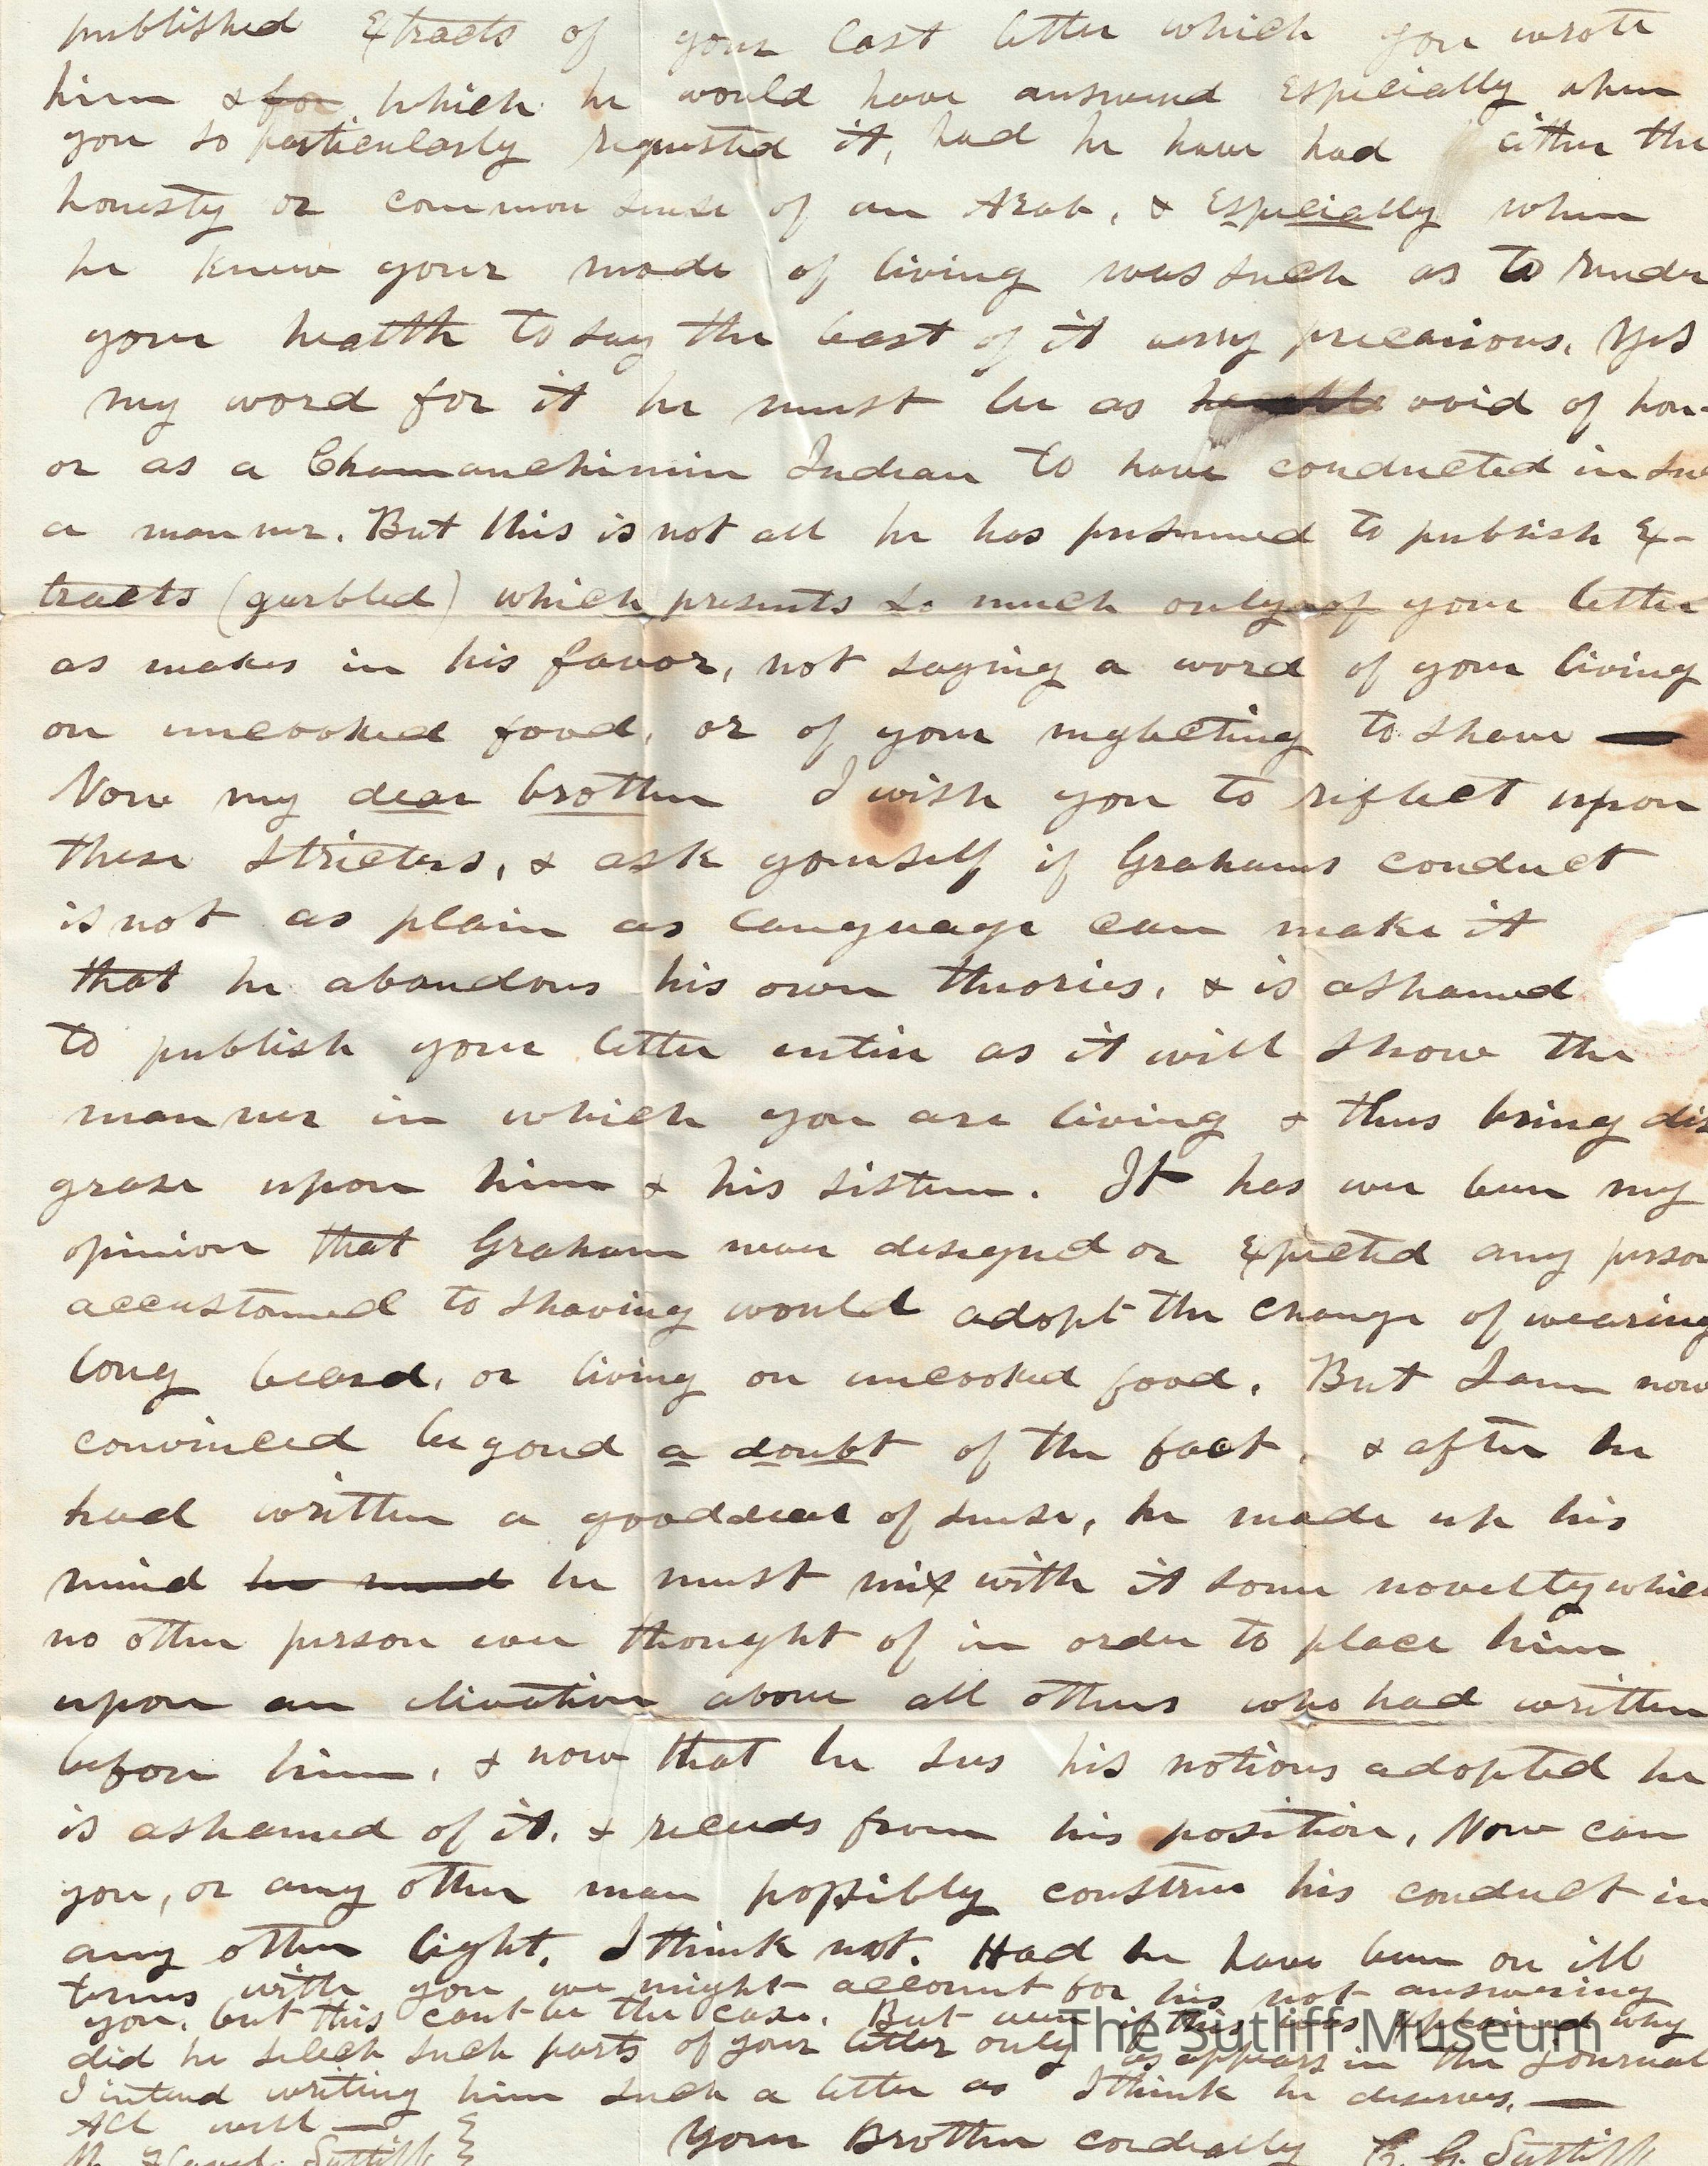 published Extracts of your last letter which you wrote
him & for which he would have answered Especially when
you so particularly requested it, had he have had either the
honesty or common sense of an Arab, & Especially when
he knew your mode of living was such as to render
your health to say the least of it very precarious. Yes
my word for it he must be as void of hon-
or as a Chamanchimin Indian to have conducted in such
a manner. But this is not all he has presumed to publish Ex-
tracts (garbled) which presents so much only of your letter
as makes in his favor, not saying a word of your living
on uncooked food, or of your neglecting to shave —
Now my dear brother I wish you to reflect upon
these Stricters, & ask yourself if Grahams conduct
is not as plain as language can make it
that he abandons his own theories, & is ashamed
to publish your letter entire as it will show the
manner in which you are living & thus bring dis
grase upon him & his sistem. It has ever been my
opinion that Graham never designed or Expected any person
accustomed to shaving would adopt the change of wearing
long beard, or living on uncooked food. But I am now
convinced beyond a doubt of the fact, & after he
had written a good deal of sense, he made up his
mind he mind he must mix with it some novelty which
no other person ever thought of in order to place him
upon an elivation above all others who had written
before him, & now that he sees his notions adopted he
is ashamed of it, & receeds from his position, Now can
you, or any other man possibly construe his conduct in
any other light, I think not. Had he have been on ill
terms with you we might account for his not answering
you, but this cant be the case. But even if this was why
did he select such parts of your letter only as appears in the Journal
I intend writing him such a letter as I think he deserves. —
All well —
Your Brother cordially C. G. Sutliff
Sutliff
The Sutliff Museum